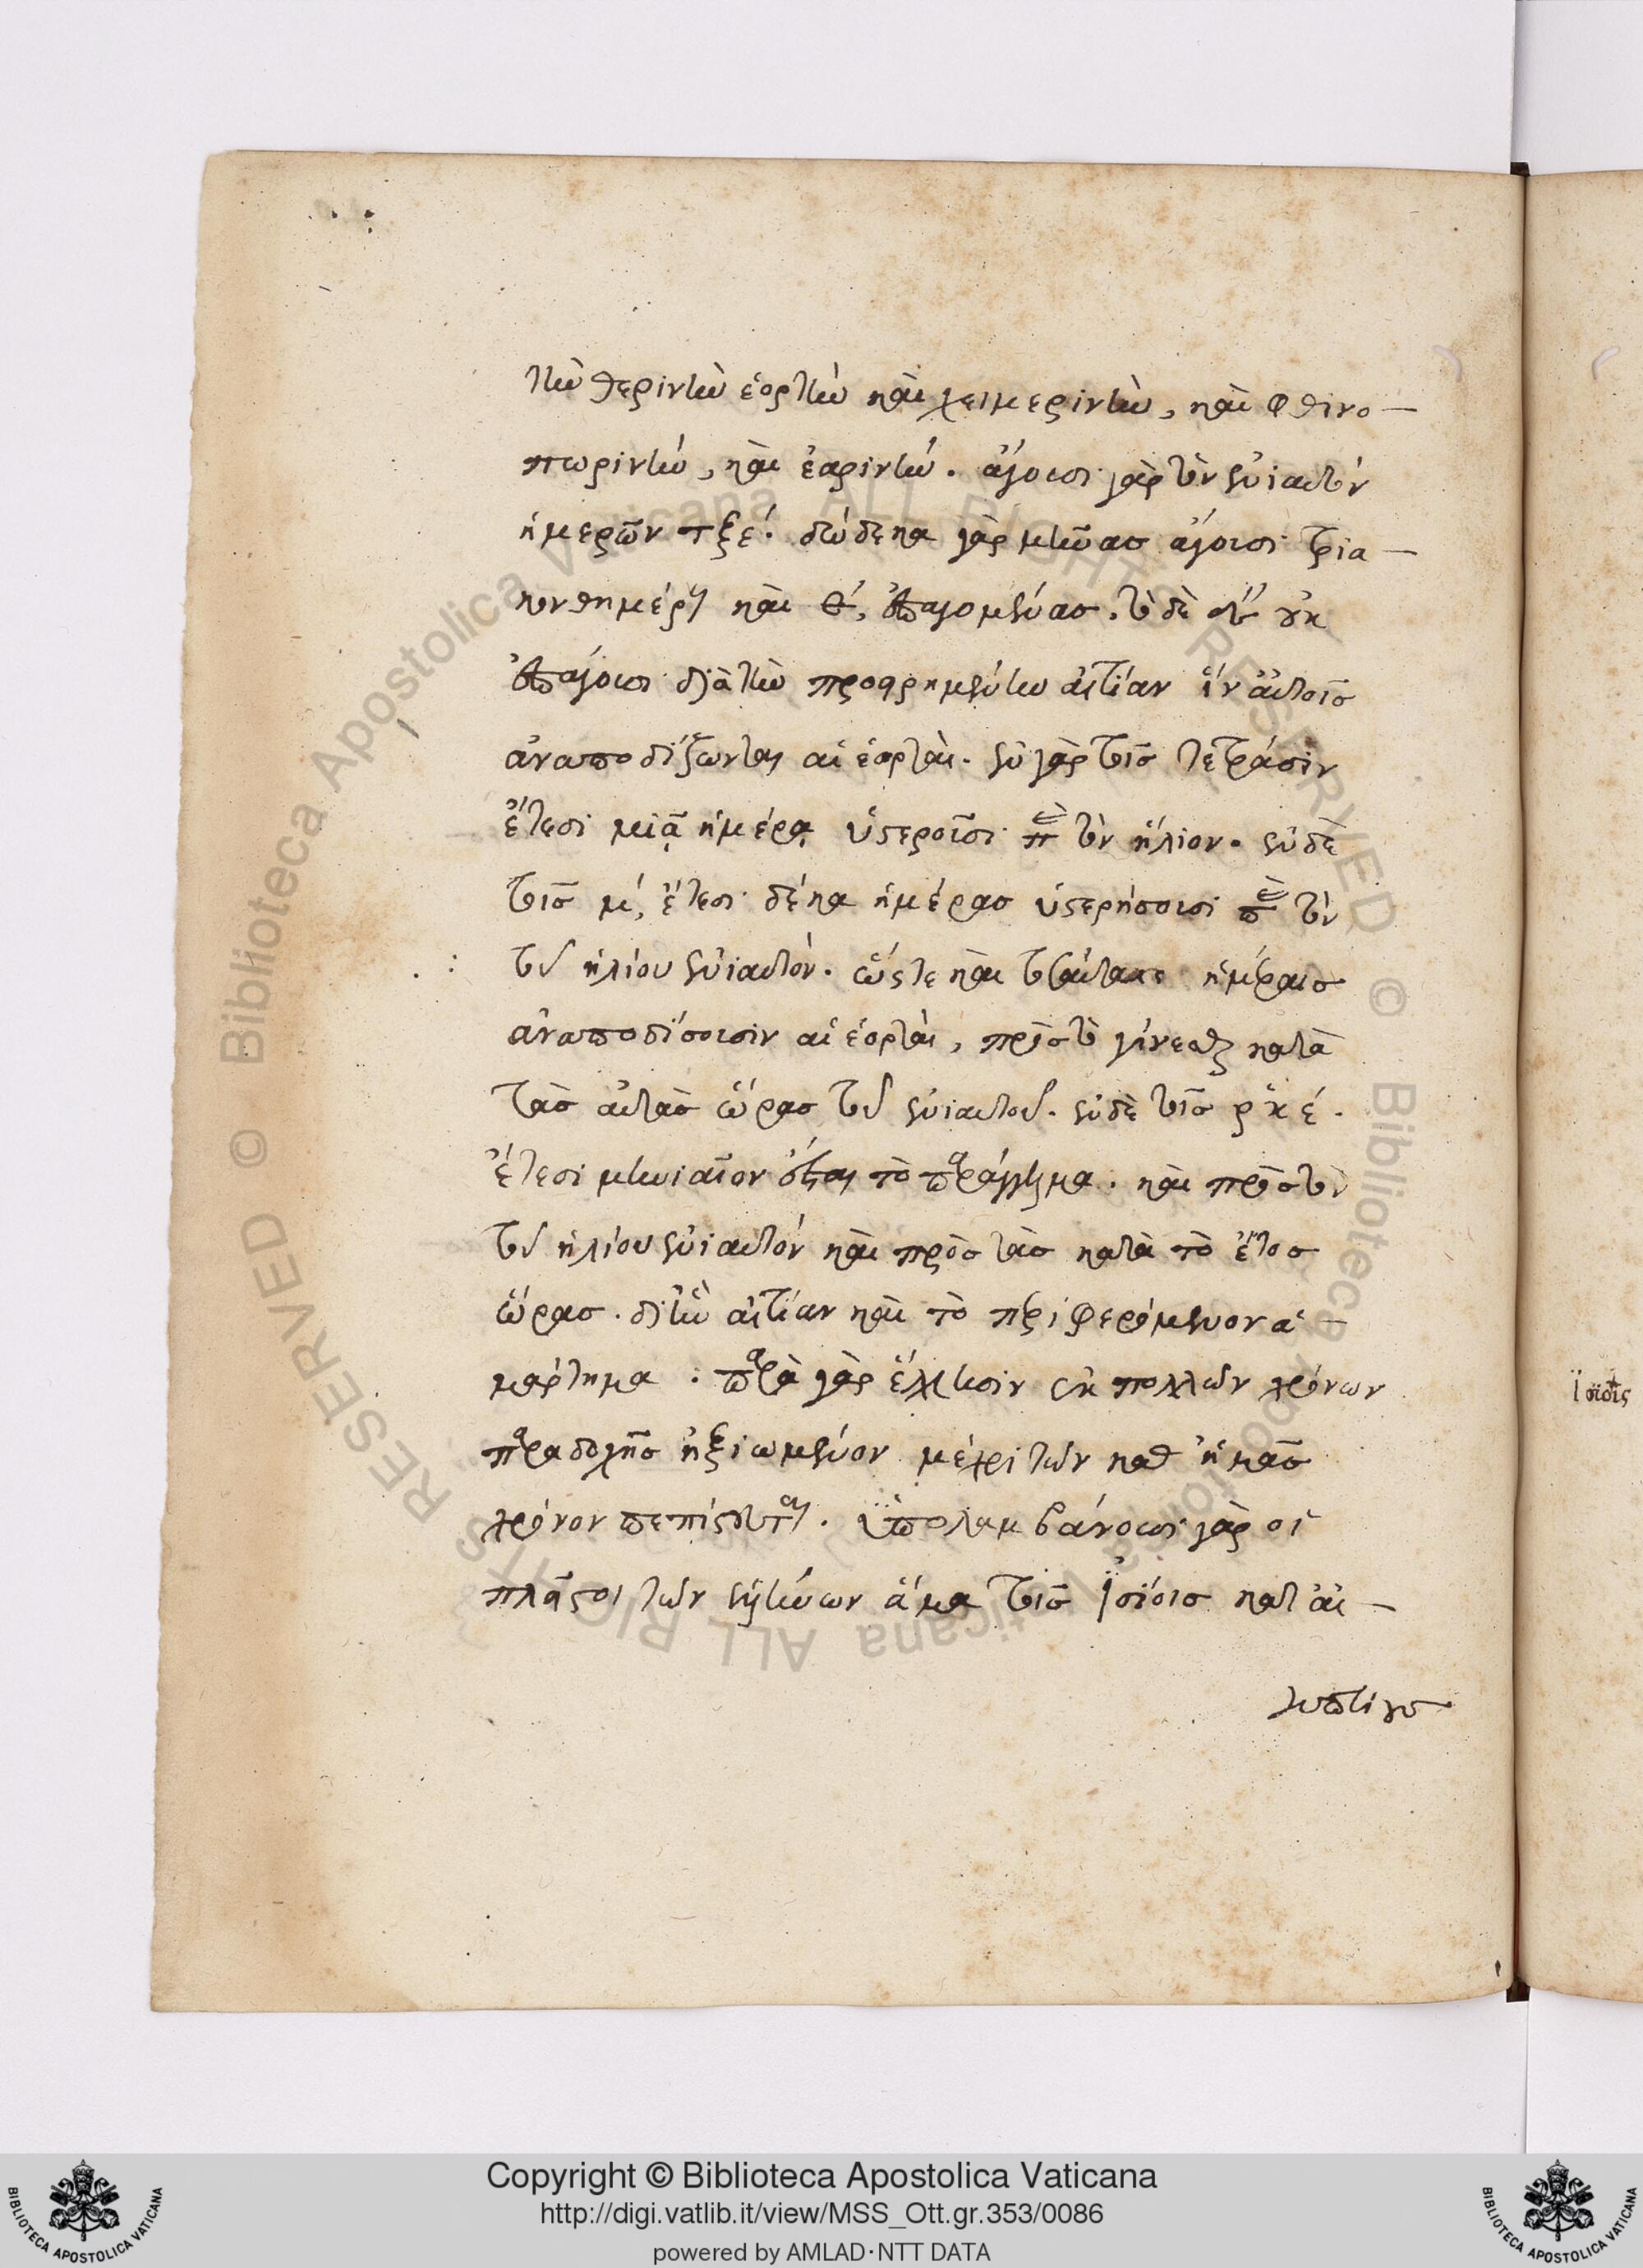 τὴν θερινὴν ἑορτὴν καὶ χειμερινὴν, καὶ φθινο—
πωρινήν, καὶ ἐαρινήν. ἄγουσι γὰρ τὸν ἐνιαυτὸν
ἡμερῶν τξε΄. δώδεκα γὰρ μῆνας ἄγουσι τρια—
κονθημέρους καὶ ε΄, ἐπαγομένας. τὸ δὲ δ΄΄ οὐκ
ἐπάγουσι διὰ τὴν προειρημένην αἰτίαν ἵν' αὐτοῖς
ἀναποδίζωνται αἱ ἑορταὶ. ἐν γὰρ τοῖς τέτρασιν
ἔτεσι μιᾷ ἡμέρᾳ ὑστεροῦσι παρὰ τὸν ἥλιον. ἐν δὲ
τοῖς μ΄, ἔτεσι δέκα ἡμέρας ὑστερήσουσι παρὰ τὸν
τοῦ ἡλίου ἐνιαυτόν. ὥστε καὶ τοσαύταις ἡμέραις
ἀναποδίσουσιν αἱ ἑορταὶ, πρὸς τὸ γίνεσθαι κατὰ
τὰς αὐτὰς ὥρας τοῦ ἐνιαυτοῦ. ἐν δὲ τοῖς ρκε΄.
ἔτεσι μηνιαῖον ἔσται τὸ παράλλαγμα. καὶ πρὸς τὸν
τοῦ ἡλίου ἐνιαυτόν καὶ πρὸς τὰς κατὰ τὸ ἔτος
ὥρας. δι' ἣν αἰτίαν καὶ τὸ περιφερόμενον ἁ—
μάρτημα : παρὰ γὰρ ἕλλησιν ἐκ πολλῶν χρόνων
παραδοχῆς ἠξιωμένον μέχρι τῶν καθ' ἡμᾶς
χρόνον πεπίστευται. ὑπολαμβάνουσι γὰρ οἱ
πλεῖστοι τῶν ἑλλήνων ἅμα τοῖς ἰσίοις κατ' αἰ—
γυπτίους
Copyright © Biblioteca Apostolica Vaticana
http://digi.vatlib.it/view/MSS_Ott.gr.353/0086
powered by AMLAD·NTT DATA
BIBLIOTECA APOSTOLICA VATICANA
BIBLIOTECA APOSTOLICA VATICANA